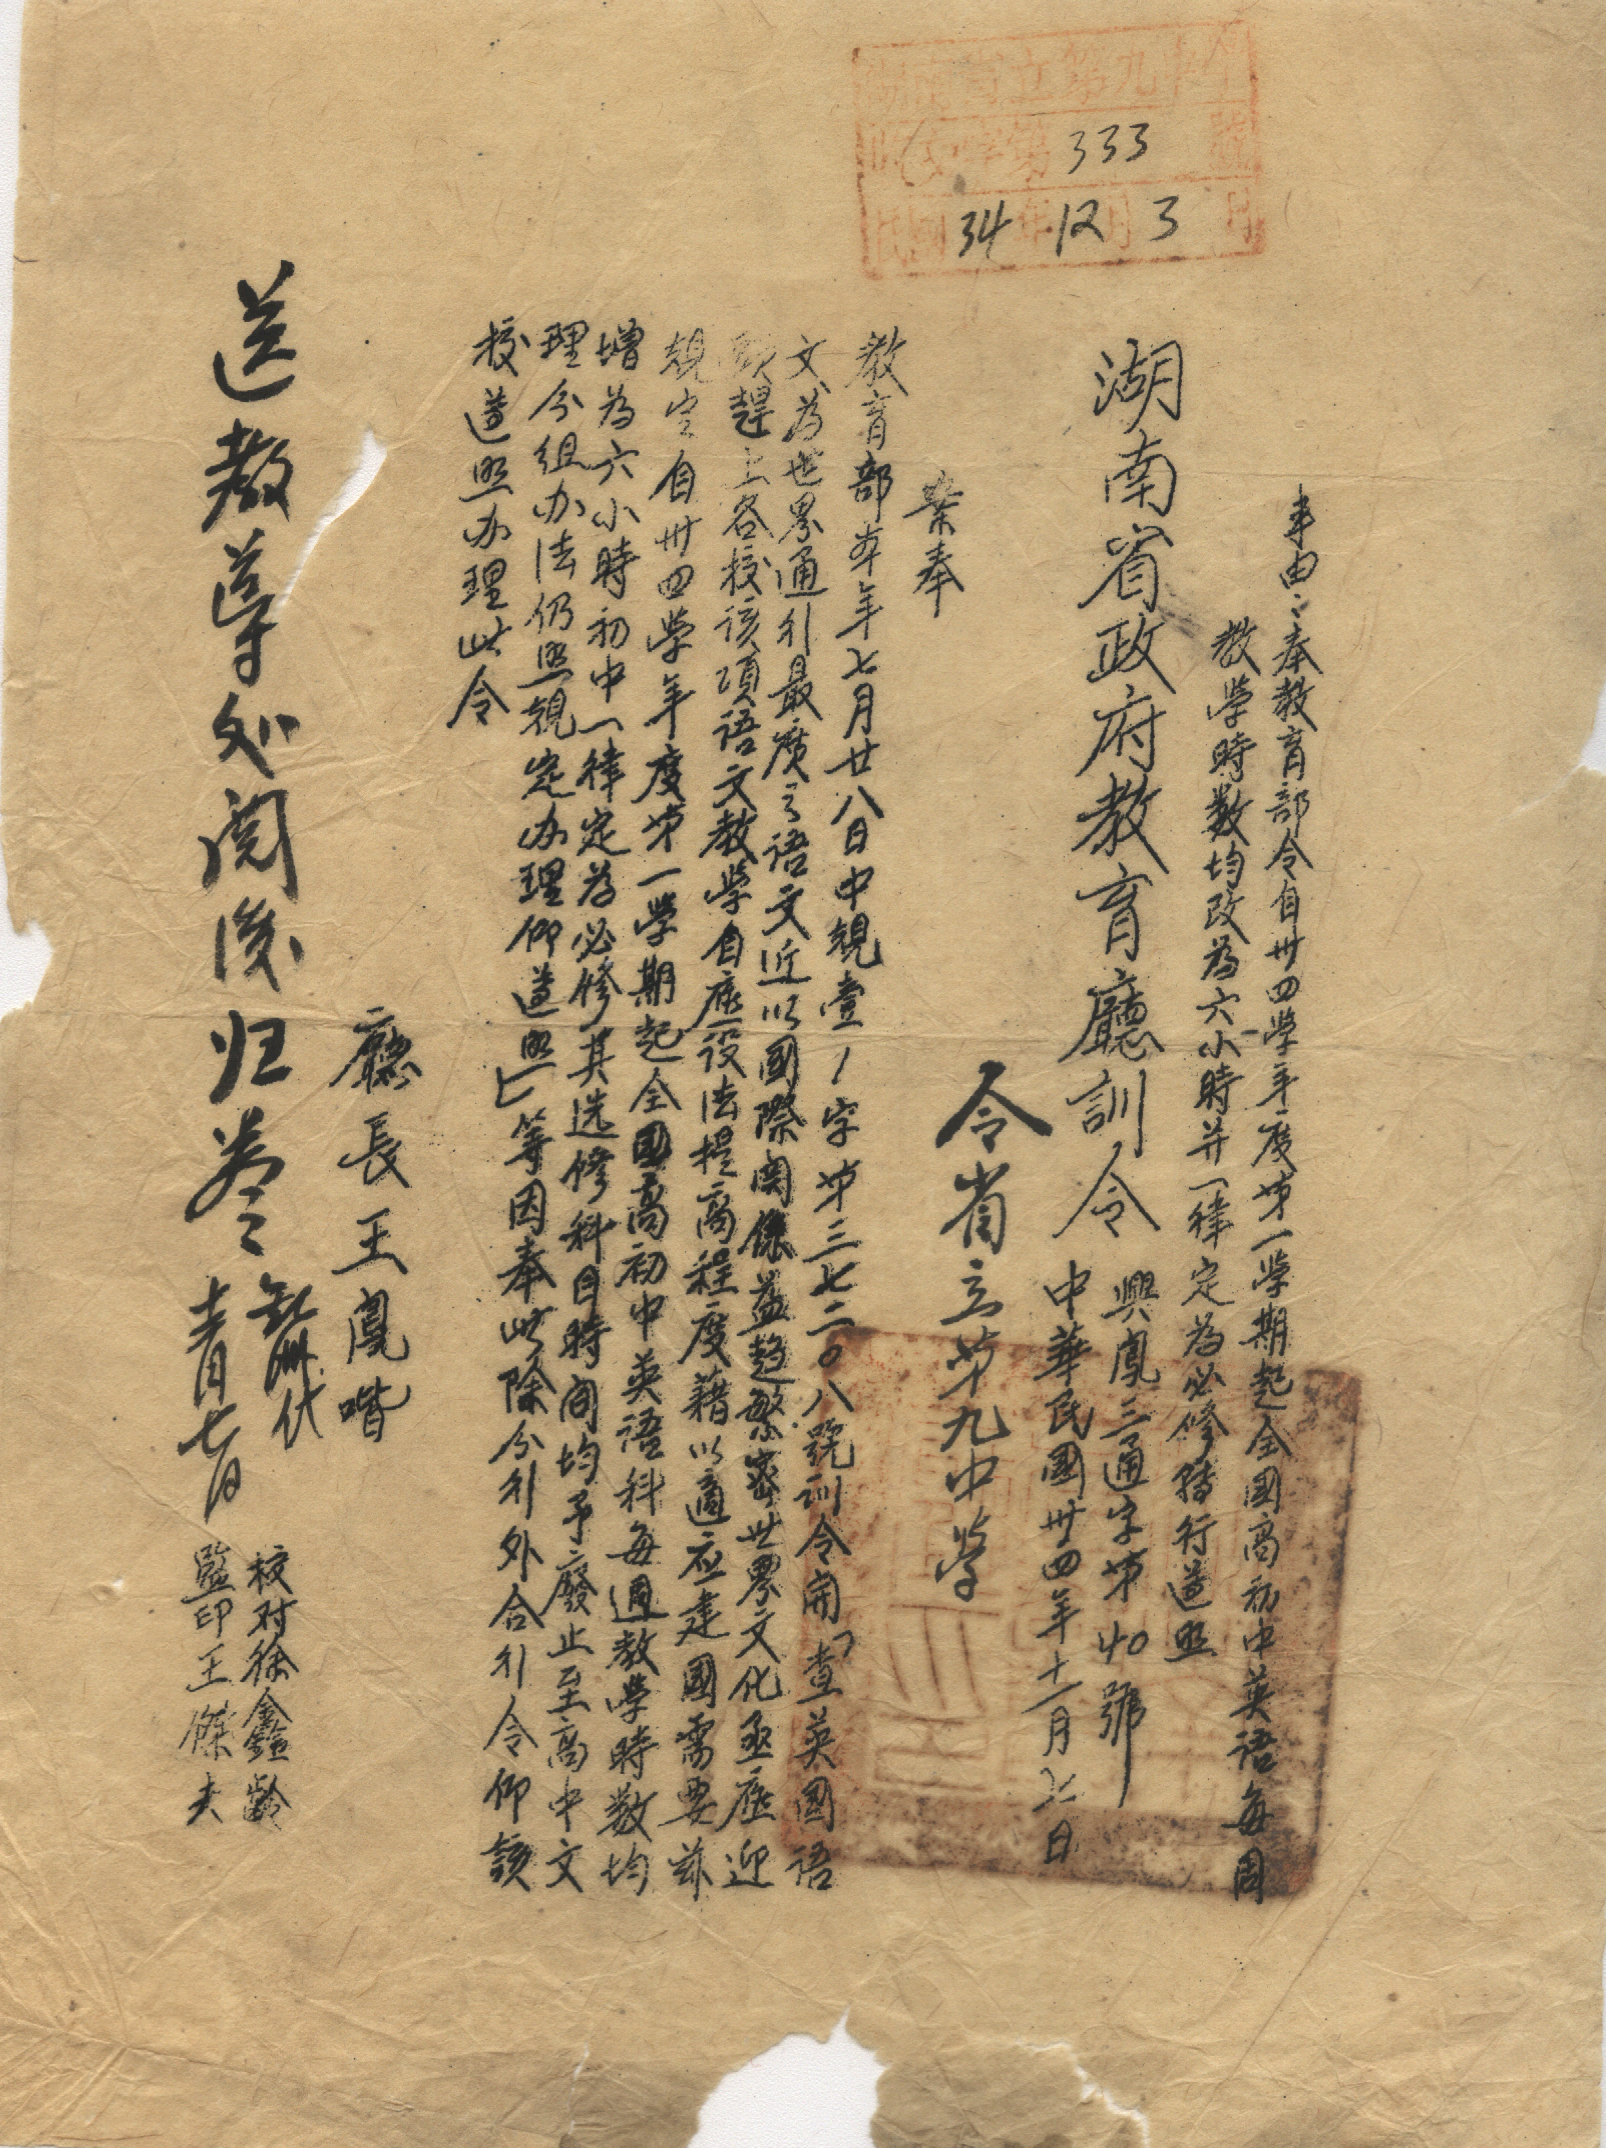 湖南省立第九中學
收文字第333號
民國34年12月3日
事由：奉教育部令自卅四學年度第一學期起全國高初中英語每周
教學時數均改為六小時并一律定為必修轉行遵照
湖南省政府教育廳訓令
興鳳三通字第40號
中華民國卅四年十一月七日
令省立第九中學
案奉
教育部本年七月廿八日中規壹1字第三七二〇八號訓令開「查英國語
文為世界通行最廣之語文近以國際関係益趨繁密世界文化亟應迎
頭趕上各校該項語文教學自應設法提高程度藉以適应建國需要茲
規定自卅四學年度第一學期起全國高初中英语科每週教學時數均
增為六小時初中一律定為必修其选修科目時间均予廢止至高中文
理分组办法仍照規定办理仰遵照」等因奉此除分行外合行令仰該
校遵照办理此令
廳長王鳳喈
校对徐鑫齡
監印王傑夫
送教导処阅後归卷
十二月七日